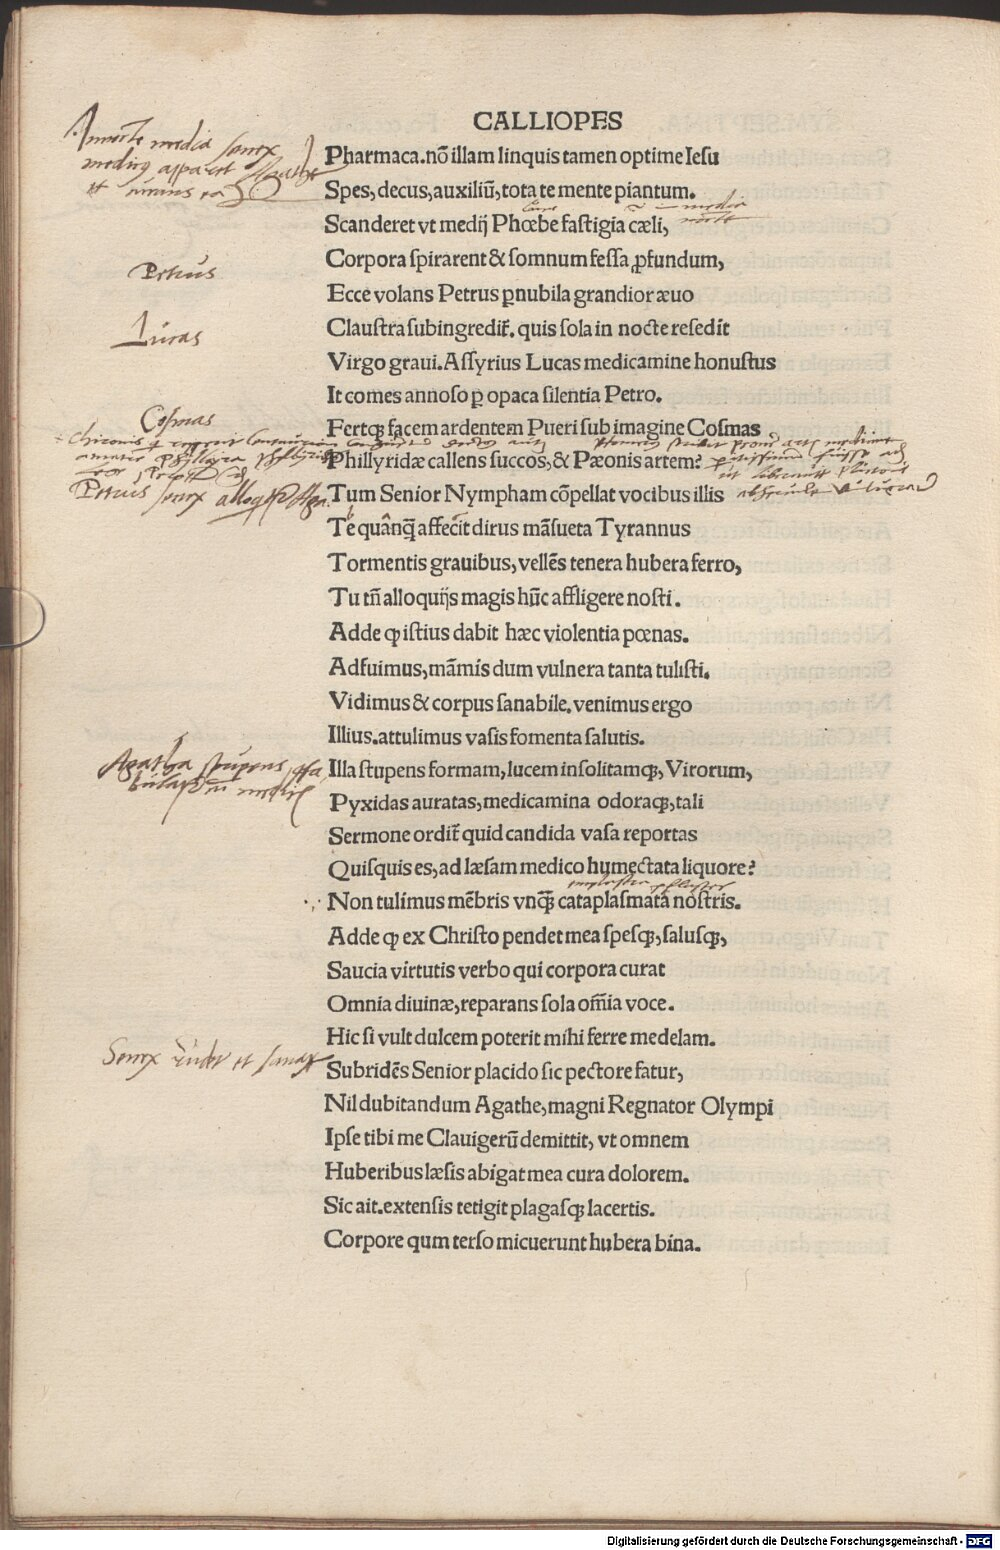 CALLIOPES
Pharmaca. nõ illam linquis tamen optime Iesu
Spes, decus, auxiliũ, tota te mente piantum.
Scanderet vt medij Phœbe fastigia cæli,
Corpora spirarent & somnum fessa ꝓfundum,
Ecce volans Petrus ꝑ nubila grandior æuo
Claustra subingredit᷑. quis sola in nocte resedit
Virgo graui. Assyrius Lucas medicamine honustus
It comes annoso ꝑ opaca silentia Petro.
Fertqꝫ facem ardentem Pueri sub imagine Cosmas
Phillyridæ callens succos, & Pæonis artem?
Tum Senior Nympham cõpellat vocibus illis
Te quãnqꝫ̃ affecit dirus mãsueta Tyrannus
Tormentis grauibus, vellẽs tenera hubera ferro,
Tu tñ alloquijs magis hũc affligere nosti.
Adde ꝙ istius dabit hæc violentia pœnas.
Adfuimus, mãmis dum vulnera tanta tulisti.
Vidimus & corpus sanabile. venimus ergo
Illius. attulimus vasis fomenta salutis.
Illa stupens formam, lucem insolitamqꝫ, Virorum,
Pyxidas auratas, medicamina odoraqꝫ, tali
Sermone ordit᷑ quid candida vasa reportas
Quisquis es, ad læsam medico humectata liquore?
Non tulimus mẽbris vnqꝫ̃ cataplasmata nostris.
Adde ꝙ ex Christo pendet mea spesqꝫ, salusqꝫ,
Saucia virtutis verbo qui corpora curat
Omnia diuinæ, reparans sola om̃ia voce.
Hic si vult dulcem poterit mihi ferre medelam.
Subridẽs Senior placido sic pectore fatur,
Nil dubitandum Agathe, magni Regnator Olympi
Ipse tibi me Clauigerũ demittit, vt omnem
Huberibus læsis abigat mea cura dolorem.
Sic ait. extensis tetigit plagasqꝫ lacertis.
Corpore qum terso micuerunt hubera bina.
Petrus
Lucas
Cosmas
Petrus senex
Agatha stupens
Senex ridet et sanat
Digitalisierung gefördert durch die Deutsche Forschungsgemeinschaft - DFG